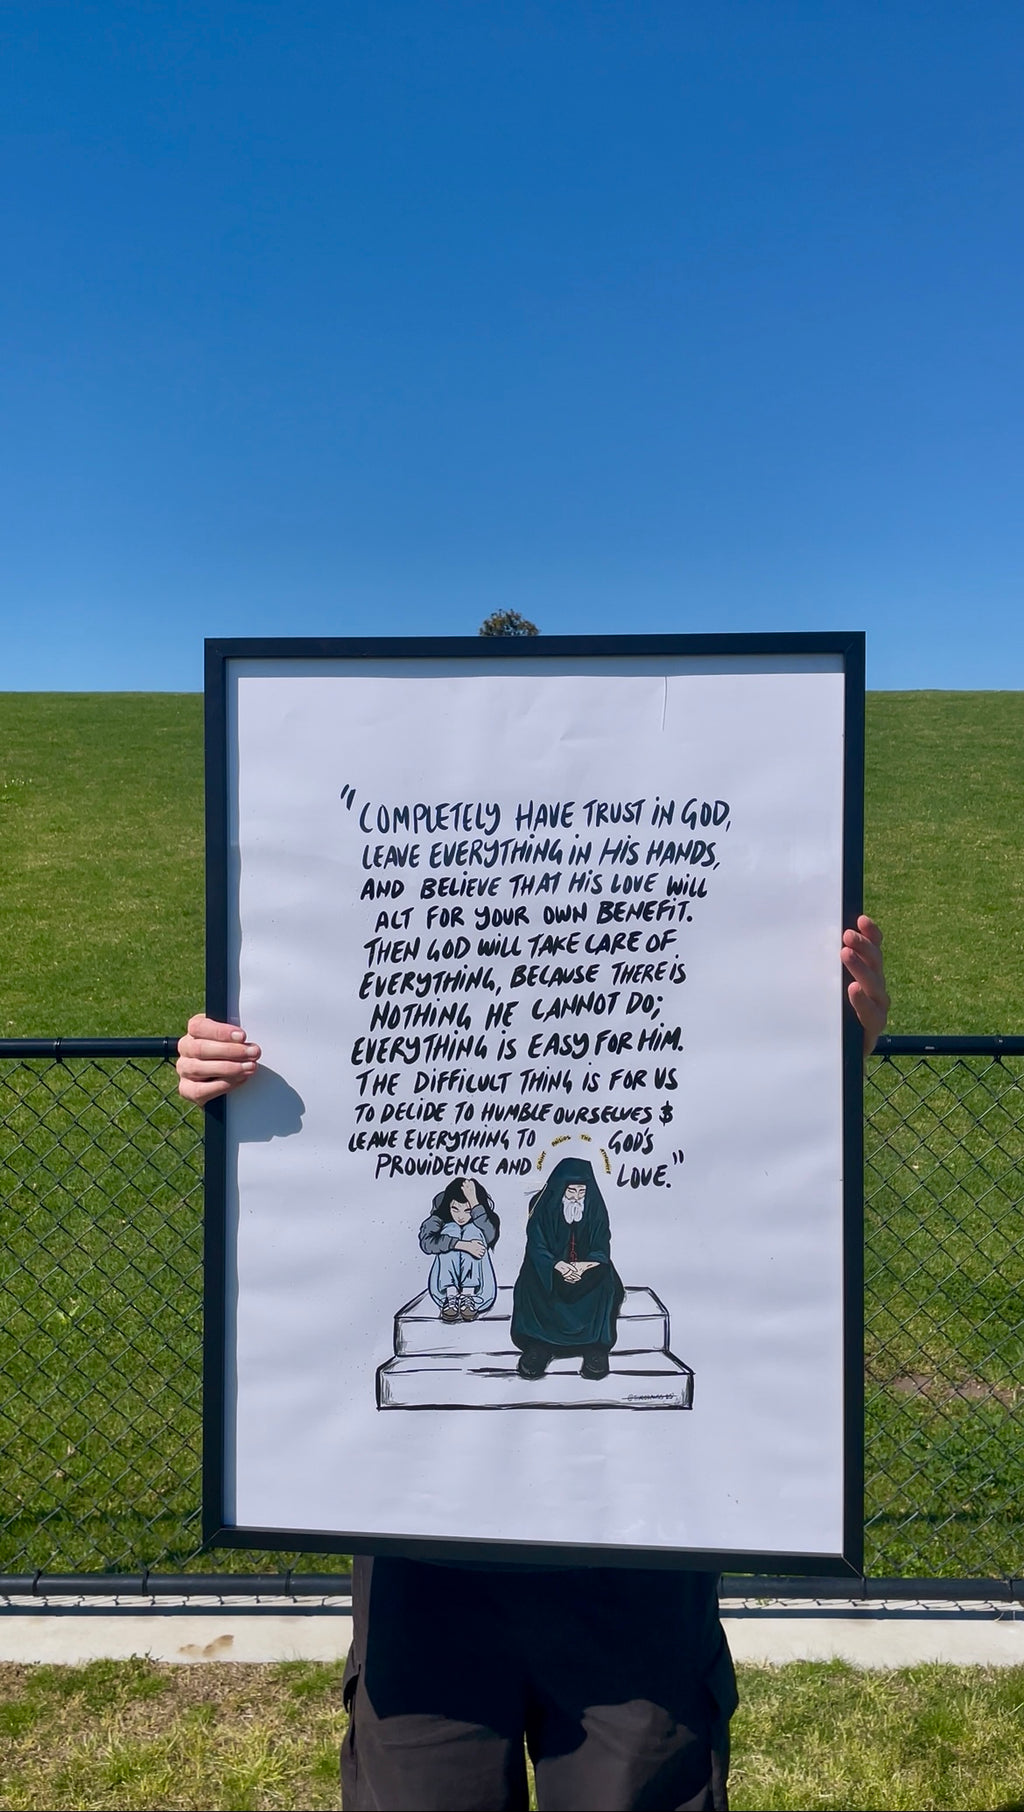 "COMPLETELY HAVE TRUST iN GOD,
LEAVE EVERYTHiNG iN HiS HANDS,
AND BELiEVE THAT HiS LOVE WiLL
ACT FOR YOUR OWN BENEFiT.
THEN GOD WiLL TAKE CARE OF
EVERYTHiNG, BECAUSE THERE iS
NOTHiNG HE CANNOT DO;
EVERYTHiNG iS EASY FOR HiM.
THE DiFFiCULT THiNG iS FOR US
TO DECiDE TO HUMBLE OURSELVES $
LEAVE EVERYTHiNG TO GOD'S
PROViDENCE AND LOVE."
SAINT PAISIOS THE ATHONITE